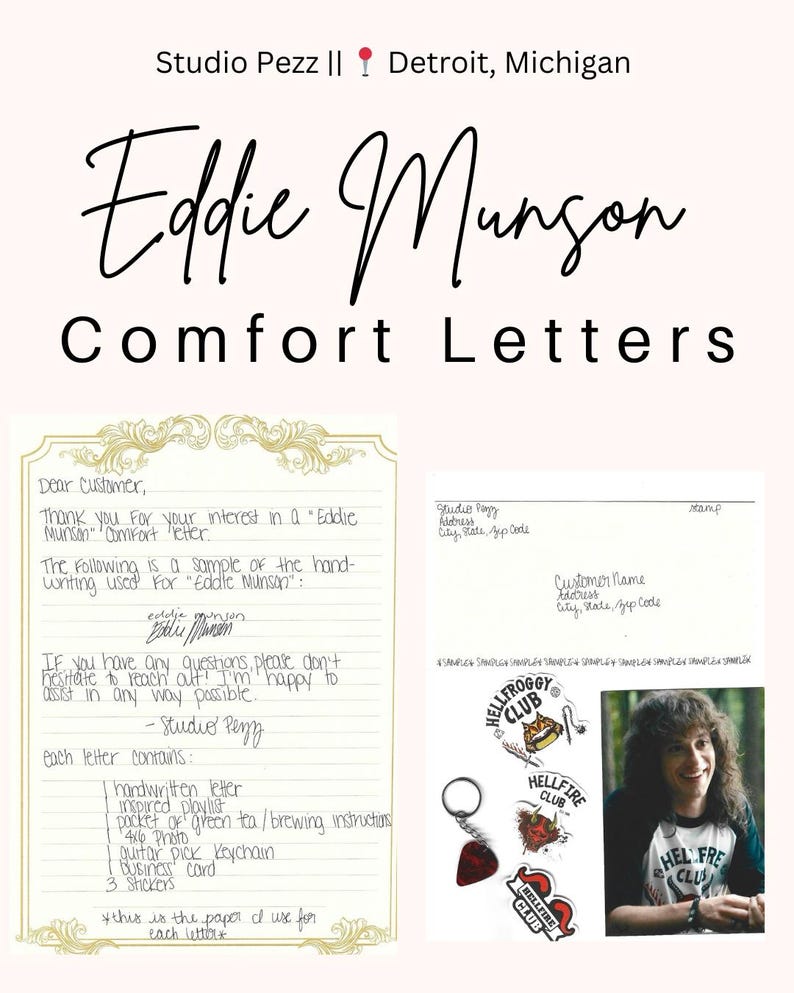 Studio Pezz || 📍 Detroit, Michigan
Eddie Munson
Comfort Letters
Dear Customer,
Thank you for your interest in a "Eddie
Munson" comfort letter.
The following is a sample of the hand-
writing used for "Eddie Munson":
eddie munson
Eddie Munson
If you have any questions, please don't
hesitate to reach out! I'm happy to
assist in any way possible.
- Studio Pezz
each letter contains:
1 handwritten letter
1 inspired playlist
1 packet of green tea / brewing instructions
1 4x6 photo
1 guitar pick keychain
1 business card
3 stickers
*this is the paper I use for
each letter*
Studio Pezz
Address
City, State, Zip Code
stamp
Customer Name
Address
City, State, Zip Code
*SAMPLE* SAMPLE* SAMPLE* SAMPLE* SAMPLE* SAMPLE* SAMPLE* SAMPLE*
HELLFROGGY
CLUB
HELLFIRE
CLUB
HELLFIRE
CLUB
HELLFIRE
CLUB